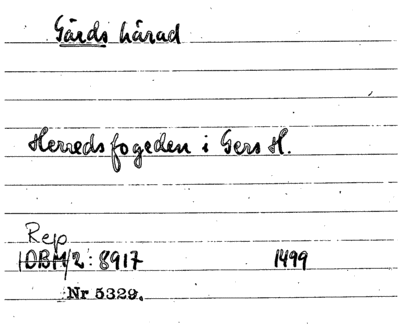 Gärds härad
Herredsfogeden i Gers H.
Rep
DBM/2: 8917 1499
Nr 5329.